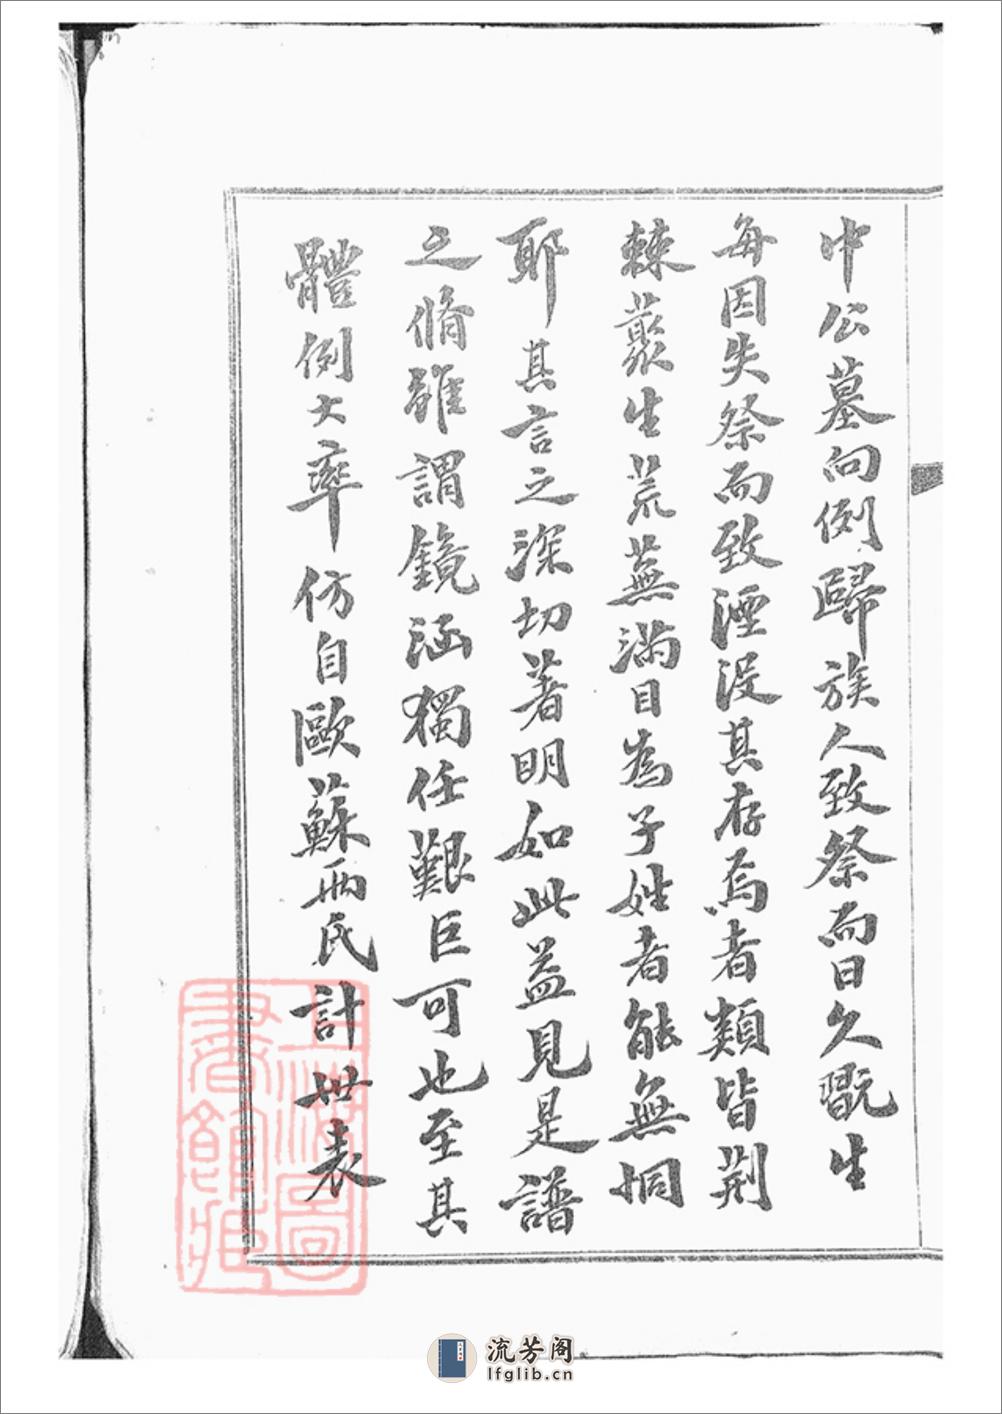 中公墓向例歸族人致祭而日久翫生
每因失祭而致湮沒其存焉者類皆荆
棘叢生荒蕪滿目為子姓者能無恫
耶其言之深切著明如此益見是譜
之脩雖謂鏡涵獨任艱巨可也至其
體例大率仿自歐蘇兩氏計世表
上海圖書館藏
流芳阁
lfglib.cn